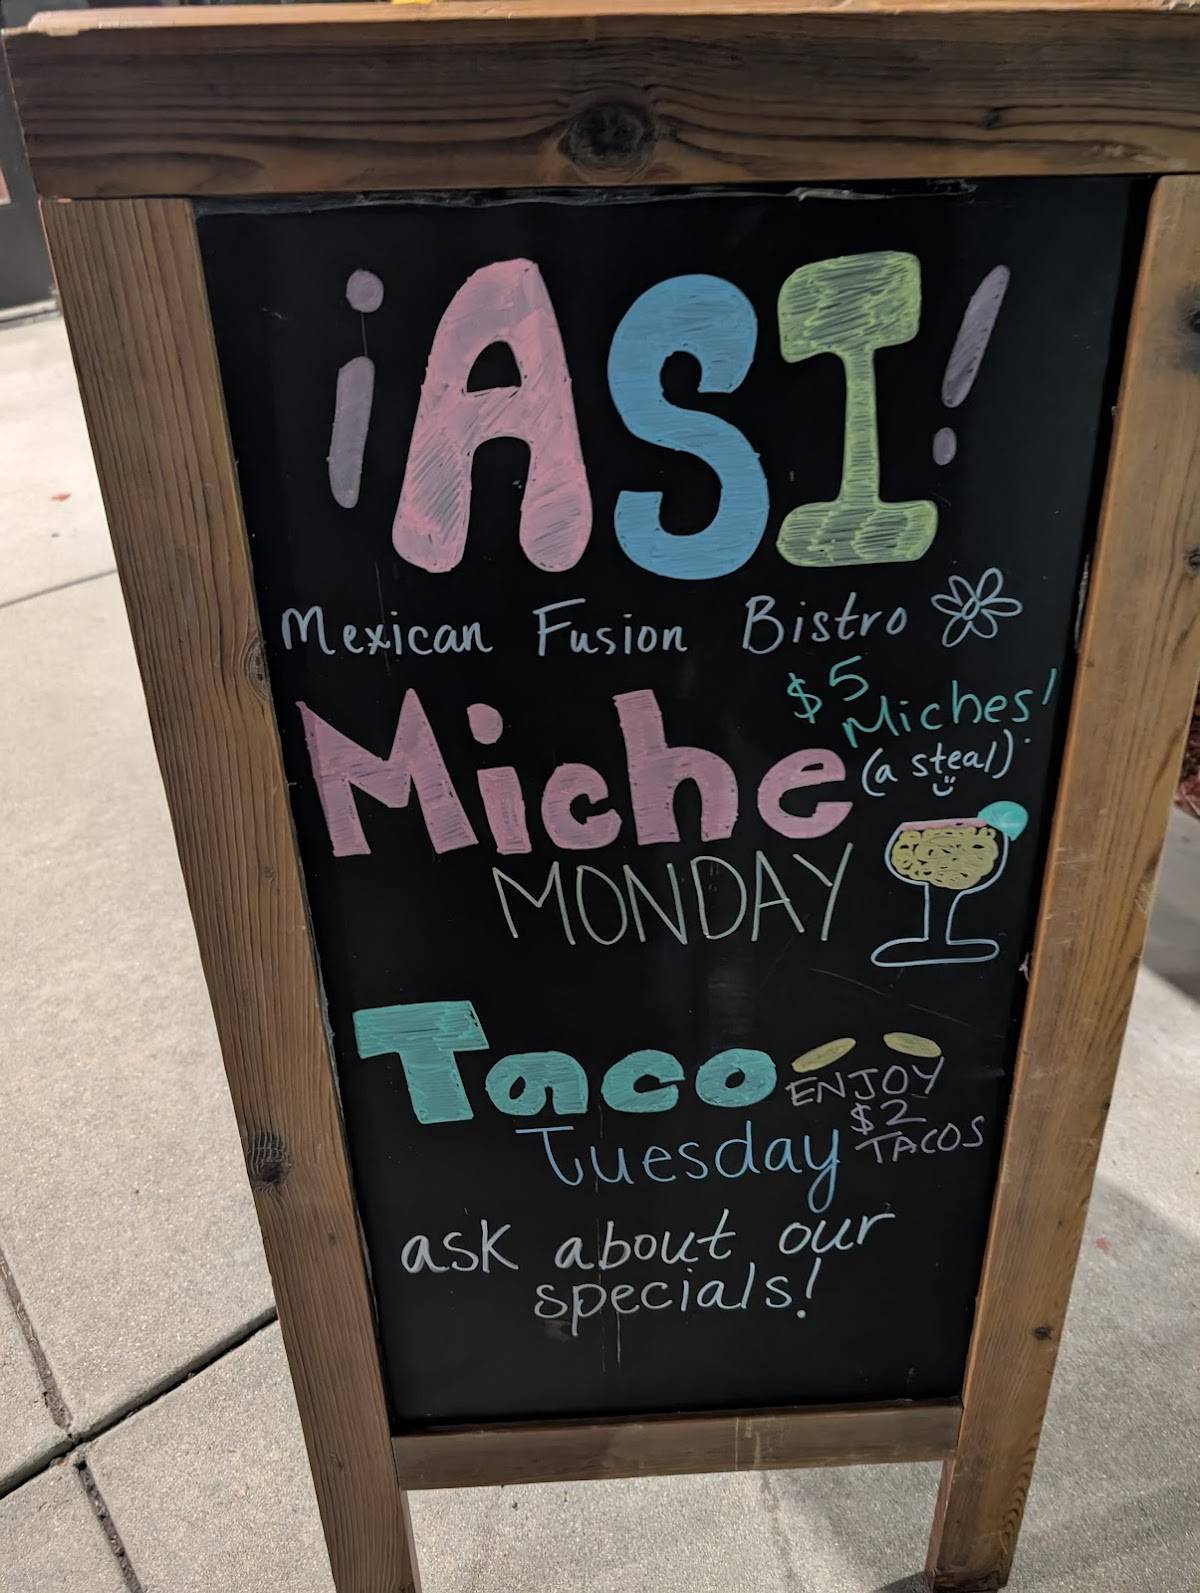 ¡ASI!
Mexican Fusion Bistro
$5
Miches!
(a steal)
Miche
MONDAY
Taco
Tuesday
ENJOY
$2
TACOS
ask about our
specials!